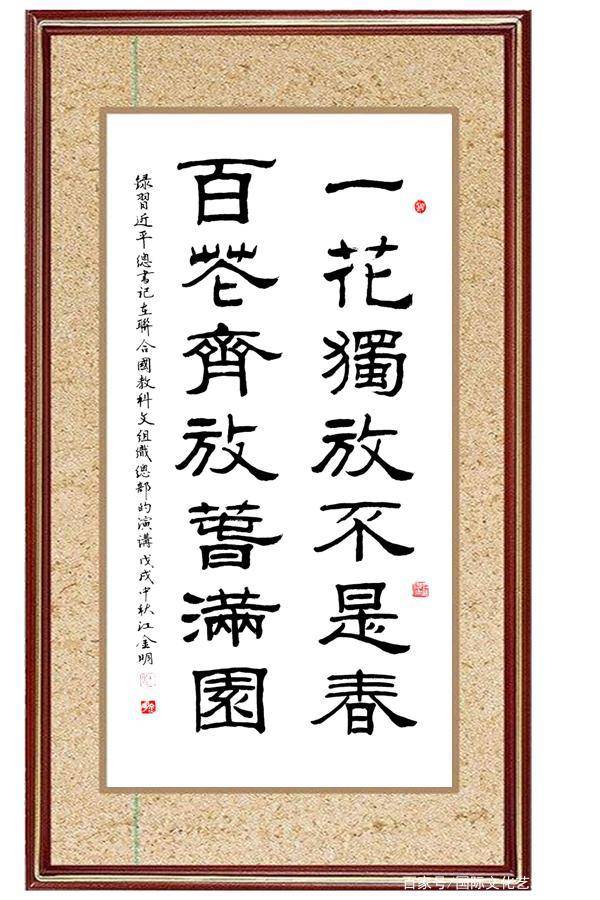 一花獨放不是春
百花齊放春滿園
錄習近平總書记在聯合國教科文組織總部的演講戊戌中秋江金明
百家号/国际文化艺